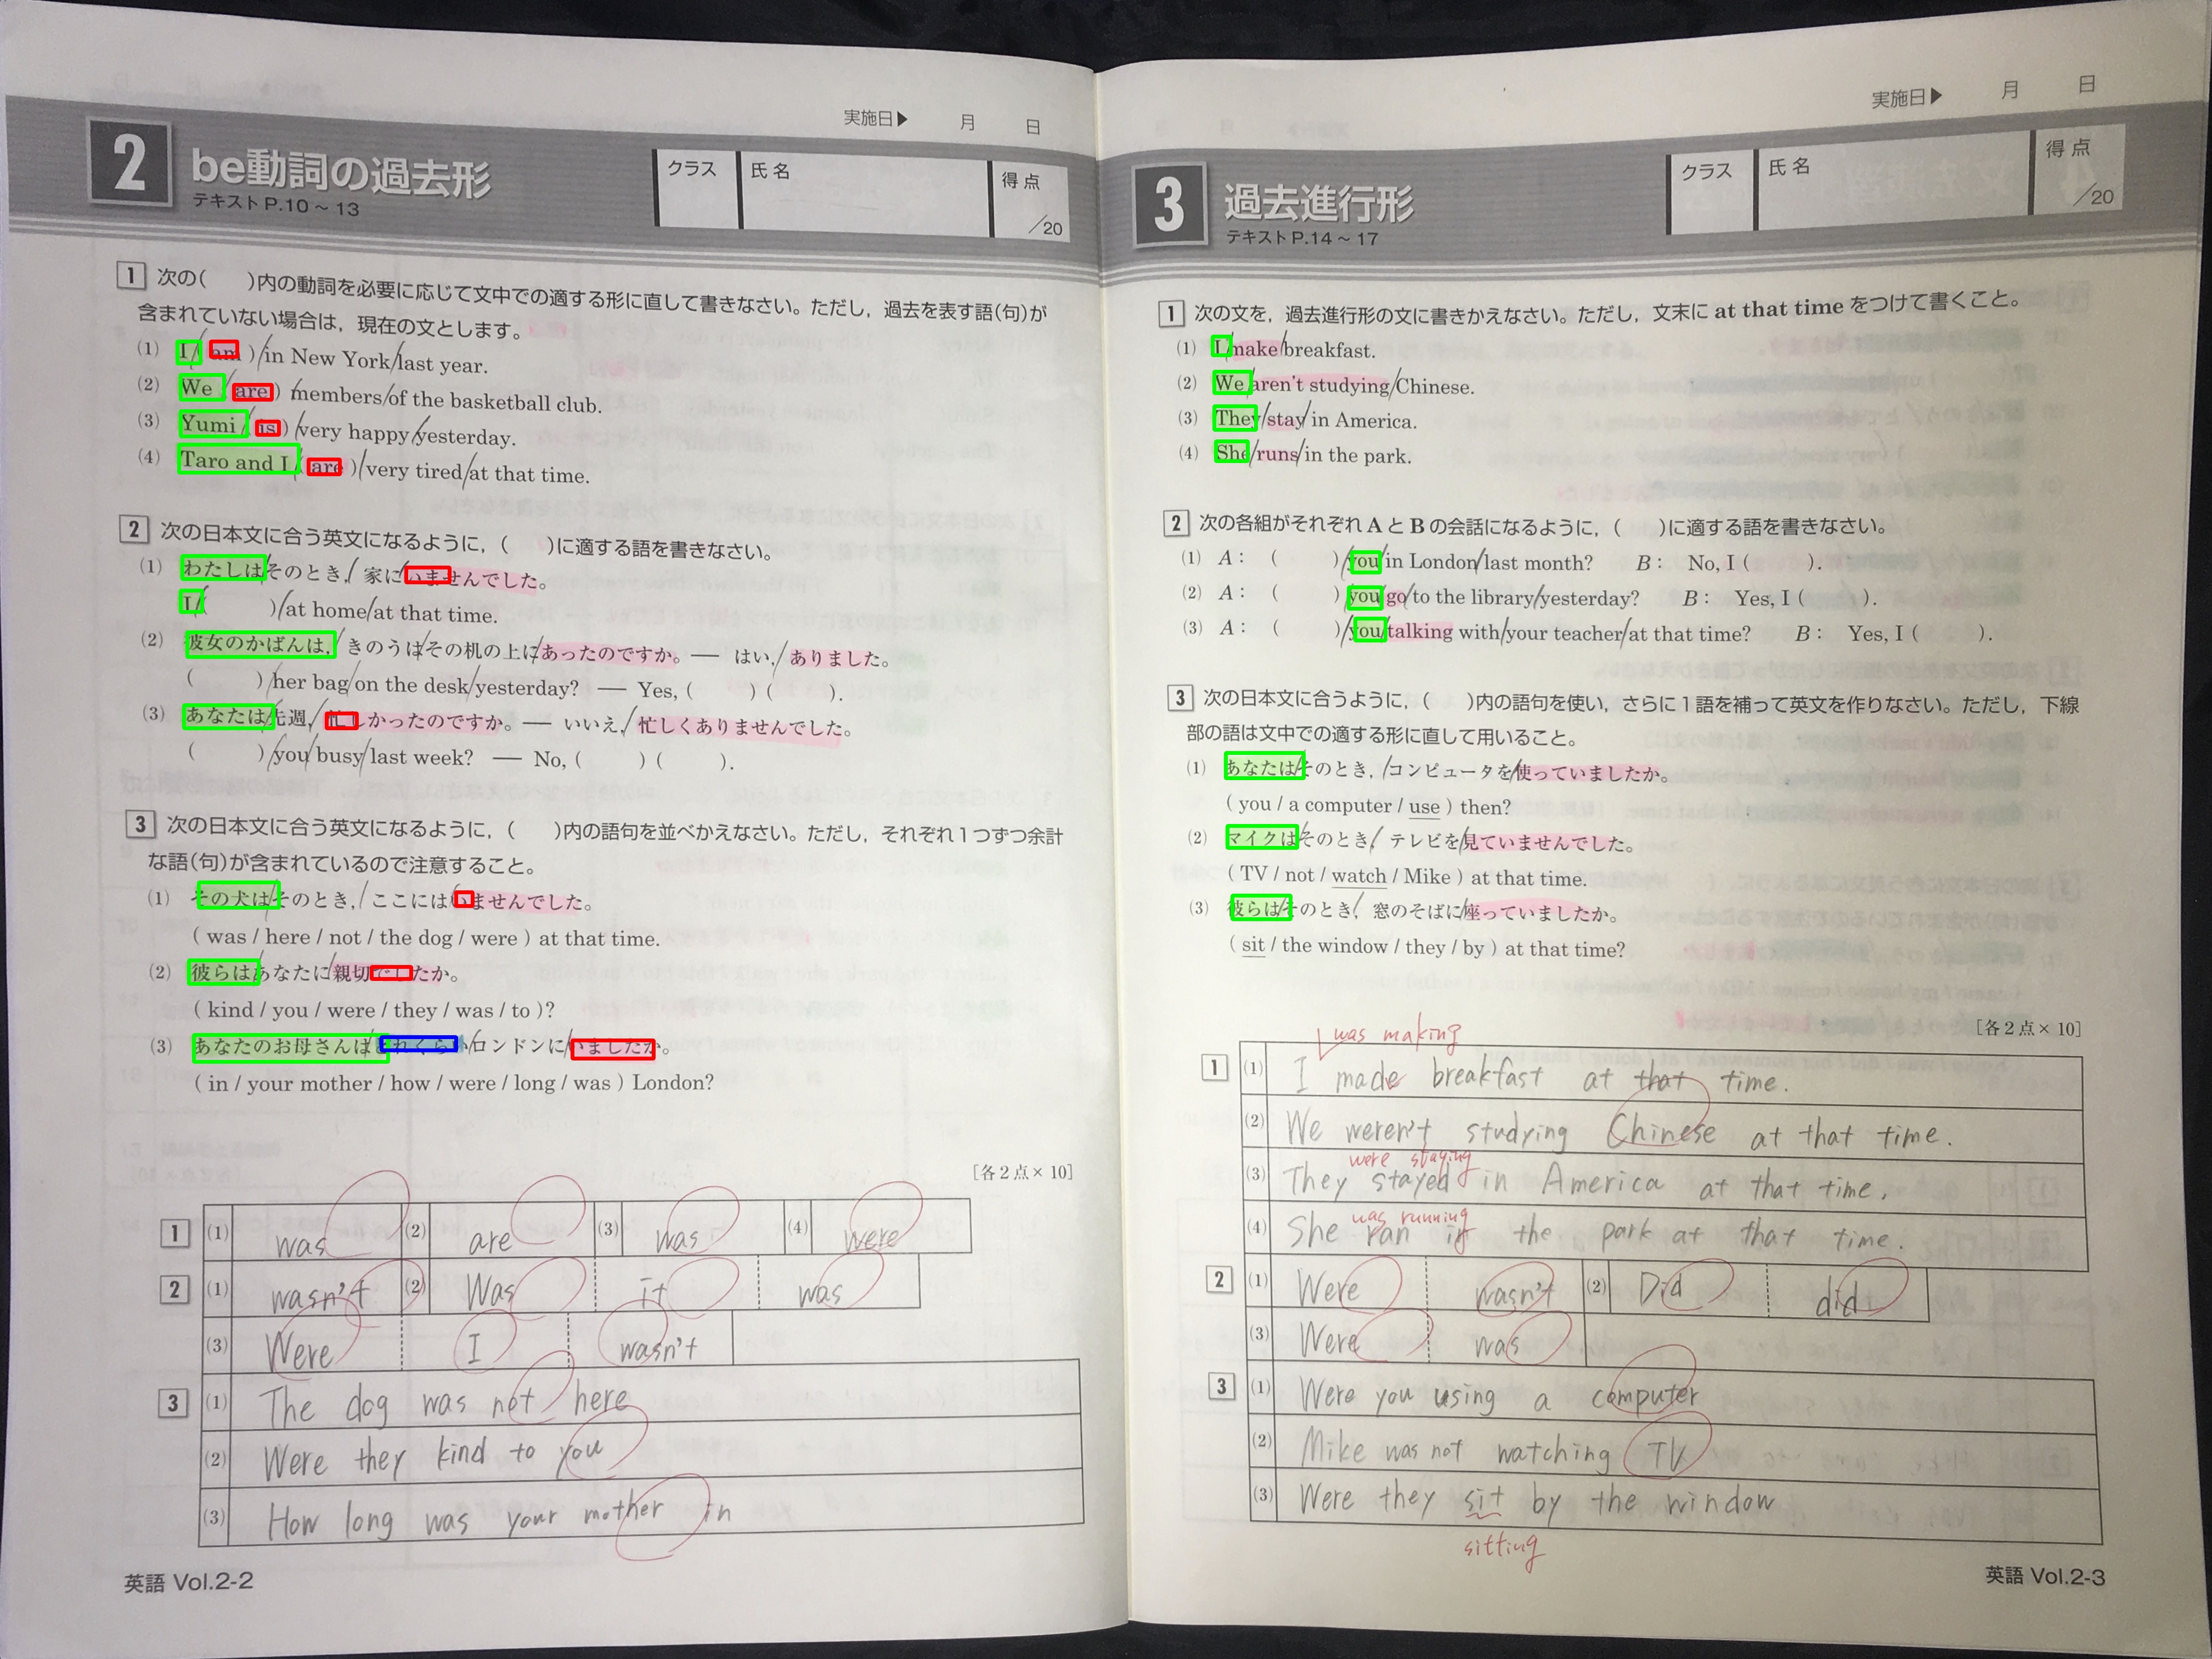 実施日▶ 月 日
2 be動詞の過去形
テキストP.10~13
クラス 氏名 得点 /20
1 次の( )内の動詞を必要に応じて文中での適する形に直して書きなさい。ただし,過去を表す語(句)が
含まれていない場合は,現在の文とします。
(1) I/( am )/in New York/last year.
(2) We/( are )/members/of the basketball club.
(3) Yumi/( is )/very happy/yesterday.
(4) Taro and I/( are )/very tired/at that time.
2 次の日本文に合う英文になるように,( )に適する語を書きなさい。
(1) わたしは/そのとき,/家に/いませんでした。
I/( )/at home/at that time.
(2) 彼女のかばんは,/きのうは/その机の上に/あったのですか。— はい,/ありました。
( )/her bag/on the desk/yesterday? — Yes, ( ) ( ).
(3) あなたは/先週,/忙しかったのですか。— いいえ,/忙しくありませんでした。
( )/you/busy/last week? — No, ( ) ( ).
3 次の日本文に合う英文になるように,( )内の語句を並べかえなさい。ただし,それぞれ1つずつ余計
な語(句)が含まれているので注意すること。
(1) その犬は/そのとき,/ここには/いませんでした。
( was / here / not / the dog / were ) at that time.
(2) 彼らは/あなたに/親切でしたか。
( kind / you / were / they / was / to )?
(3) あなたのお母さんは/どれくらい/ロンドンに/いましたか。
( in / your mother / how / were / long / was ) London?
[各2点×10]
1 (1) was (2) are (3) was (4) were
2 (1) wasn't (2) Was it was
(3) Were I wasn't
3 (1) The dog was not here
(2) Were they kind to you
(3) How long was your mother in
英語 Vol.2-2
実施日▶ 月 日
3 過去進行形
テキストP.14~17
クラス 氏名 得点 /20
1 次の文を,過去進行形の文に書きかえなさい。ただし,文末に at that time をつけて書くこと。
(1) I/make/breakfast.
(2) We/aren't studying/Chinese.
(3) They/stay/in America.
(4) She/runs/in the park.
2 次の各組がそれぞれ A と B の会話になるように,( )に適する語を書きなさい。
(1) A: ( )/you/in London/last month? B: No, I ( ).
(2) A: ( )/you/go/to the library/yesterday? B: Yes, I ( ).
(3) A: ( )/you/talking with/your teacher/at that time? B: Yes, I ( ).
3 次の日本文に合うように,( )内の語句を使い,さらに1語を補って英文を作りなさい。ただし,下線
部の語は文中での適する形に直して用いること。
(1) あなたは/そのとき,/コンピュータを/使っていましたか。
( you / a computer / use ) then?
(2) マイクは/そのとき/テレビを/見ていませんでした。
( TV / not / watch / Mike ) at that time.
(3) 彼らは/そのとき/窓のそばに/座っていましたか。
( sit / the window / they / by ) at that time?
[各2点×10]
was making
1 (1) I made breakfast at that time.
(2) We weren't studying Chinese at that time.
were staying
(3) They stayed in America at that time.
was running
(4) She ran in the park at that time.
2 (1) Were wasn't (2) Did did
(3) Were was
3 (1) Were you using a computer
(2) Mike was not watching TV
(3) Were they sit by the window
sitting
英語 Vol.2-3